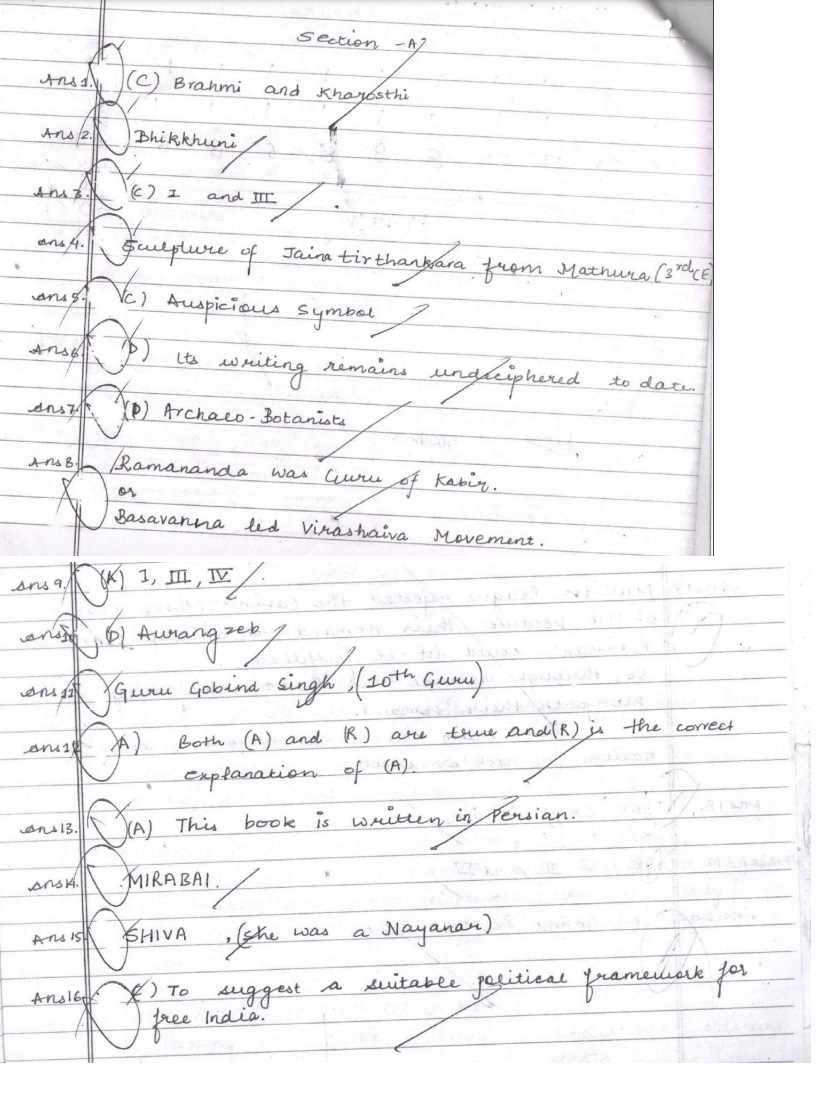 Section - A
Ans 1. (C) Brahmi and Kharosthi
Ans 2. Bhikkhuni
Ans 3. (C) I and III
Ans 4. Sculpture of Jaina tirthankara from Mathura (3rd CE)
Ans 5. (C) Auspicious Symbol
Ans 6. (D) Its writing remains undeciphered to date.
Ans 7. (D) Archaeo-Botanists
Ans 8. Ramananda was Guru of Kabir.
or
Basavanna led Virashaiva Movement.
Ans 9. I, III, IV
Ans 10. (D) Aurangzeb
Ans 11. Guru Gobind Singh, (10th Guru)
Ans 12. A) Both (A) and (R) are true and (R) is the correct
explanation of (A).
Ans 13. (A) This book is written in Persian.
Ans 14. MIRABAI.
Ans 15. SHIVA , (she was a Nayanar)
Ans 16. C) To suggest a suitable political framework for
free India.